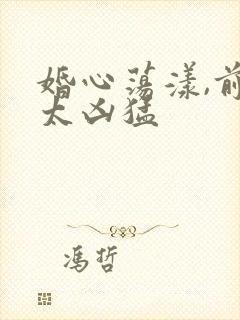 婚心荡漾,前
太凶猛
冯哲